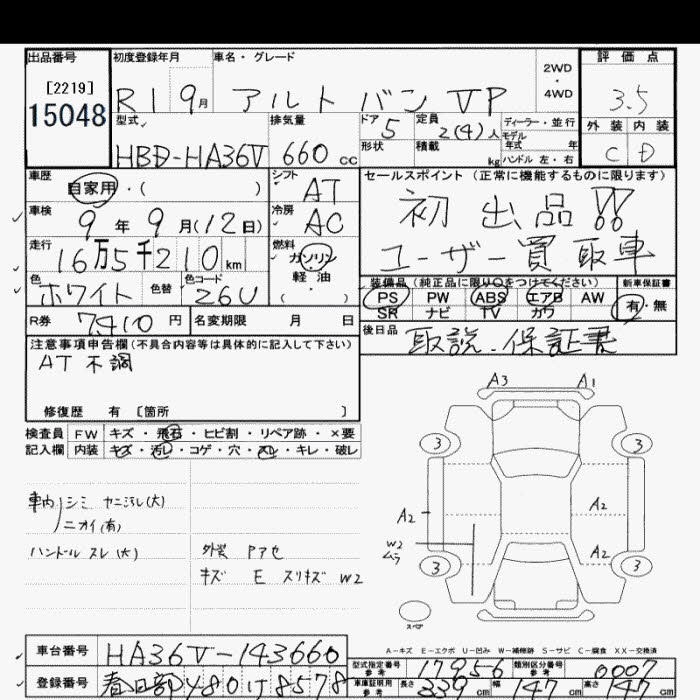 出品番号
[2219]
15048
初度登録年月 R1 9月
車名・グレード アルト バン VP
2WD
・
4WD
評価点
3.5
外装 内装
C D
型式 HBD-HA36V
排気量 660 cc
ドア 5
形状
定員 2(4)人
積載 kg
ディーラー・並行
モデル
年式 年
ハンドル 左・右
車歴
自家用・( )
シフト AT
車検
9年9月(12日)
冷房 AC
走行
16万5千210km
燃料
ガソリン
軽・油
( ・ )
色 ホワイト
色替
色コード 26U
R券 7,410円
名変期限 月 日
セールスポイント (正常に機能するものに限ります)
初出品!!
ユーザー買取車
装備品 (純正品に限り○をつけてください)
新車保証書
PS PW ABS エアB AW
SR ナビ TV カワ
有・無
後日品 取説・保証書
注意事項申告欄(不具合内容等は具体的に記入して下さい)
AT 不調
修復歴 有 〔箇所 〕
検査員 FW キズ・飛石・ヒビ割・リペア跡・×要
記入欄 内装 キズ・汚レ・コゲ・穴・スレ・キレ・破レ
車内 シミ ヤニ汚レ(大)
ニオイ(有)
ハンドル スレ(大)
外装 Pアセ
キズ E スリキズ W2
A3 A1
3 3
A2 A2
W2
ムラ
A2
3 3
スペア
A-キズ E-エクボ U-凹み W-補修跡 S-サビ C-腐食 XX-交換済
車台番号 HA36V-143660
登録番号 春日部480け8578
型式指定番号
参考
17956
類別区分番号
参考
0007
車庫証明用
参考
長さ 339cm 幅 147cm 高さ 147cm